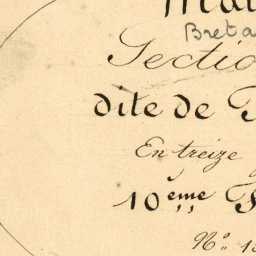 Breta
Sectio
dite de
En treize
10ème
N°